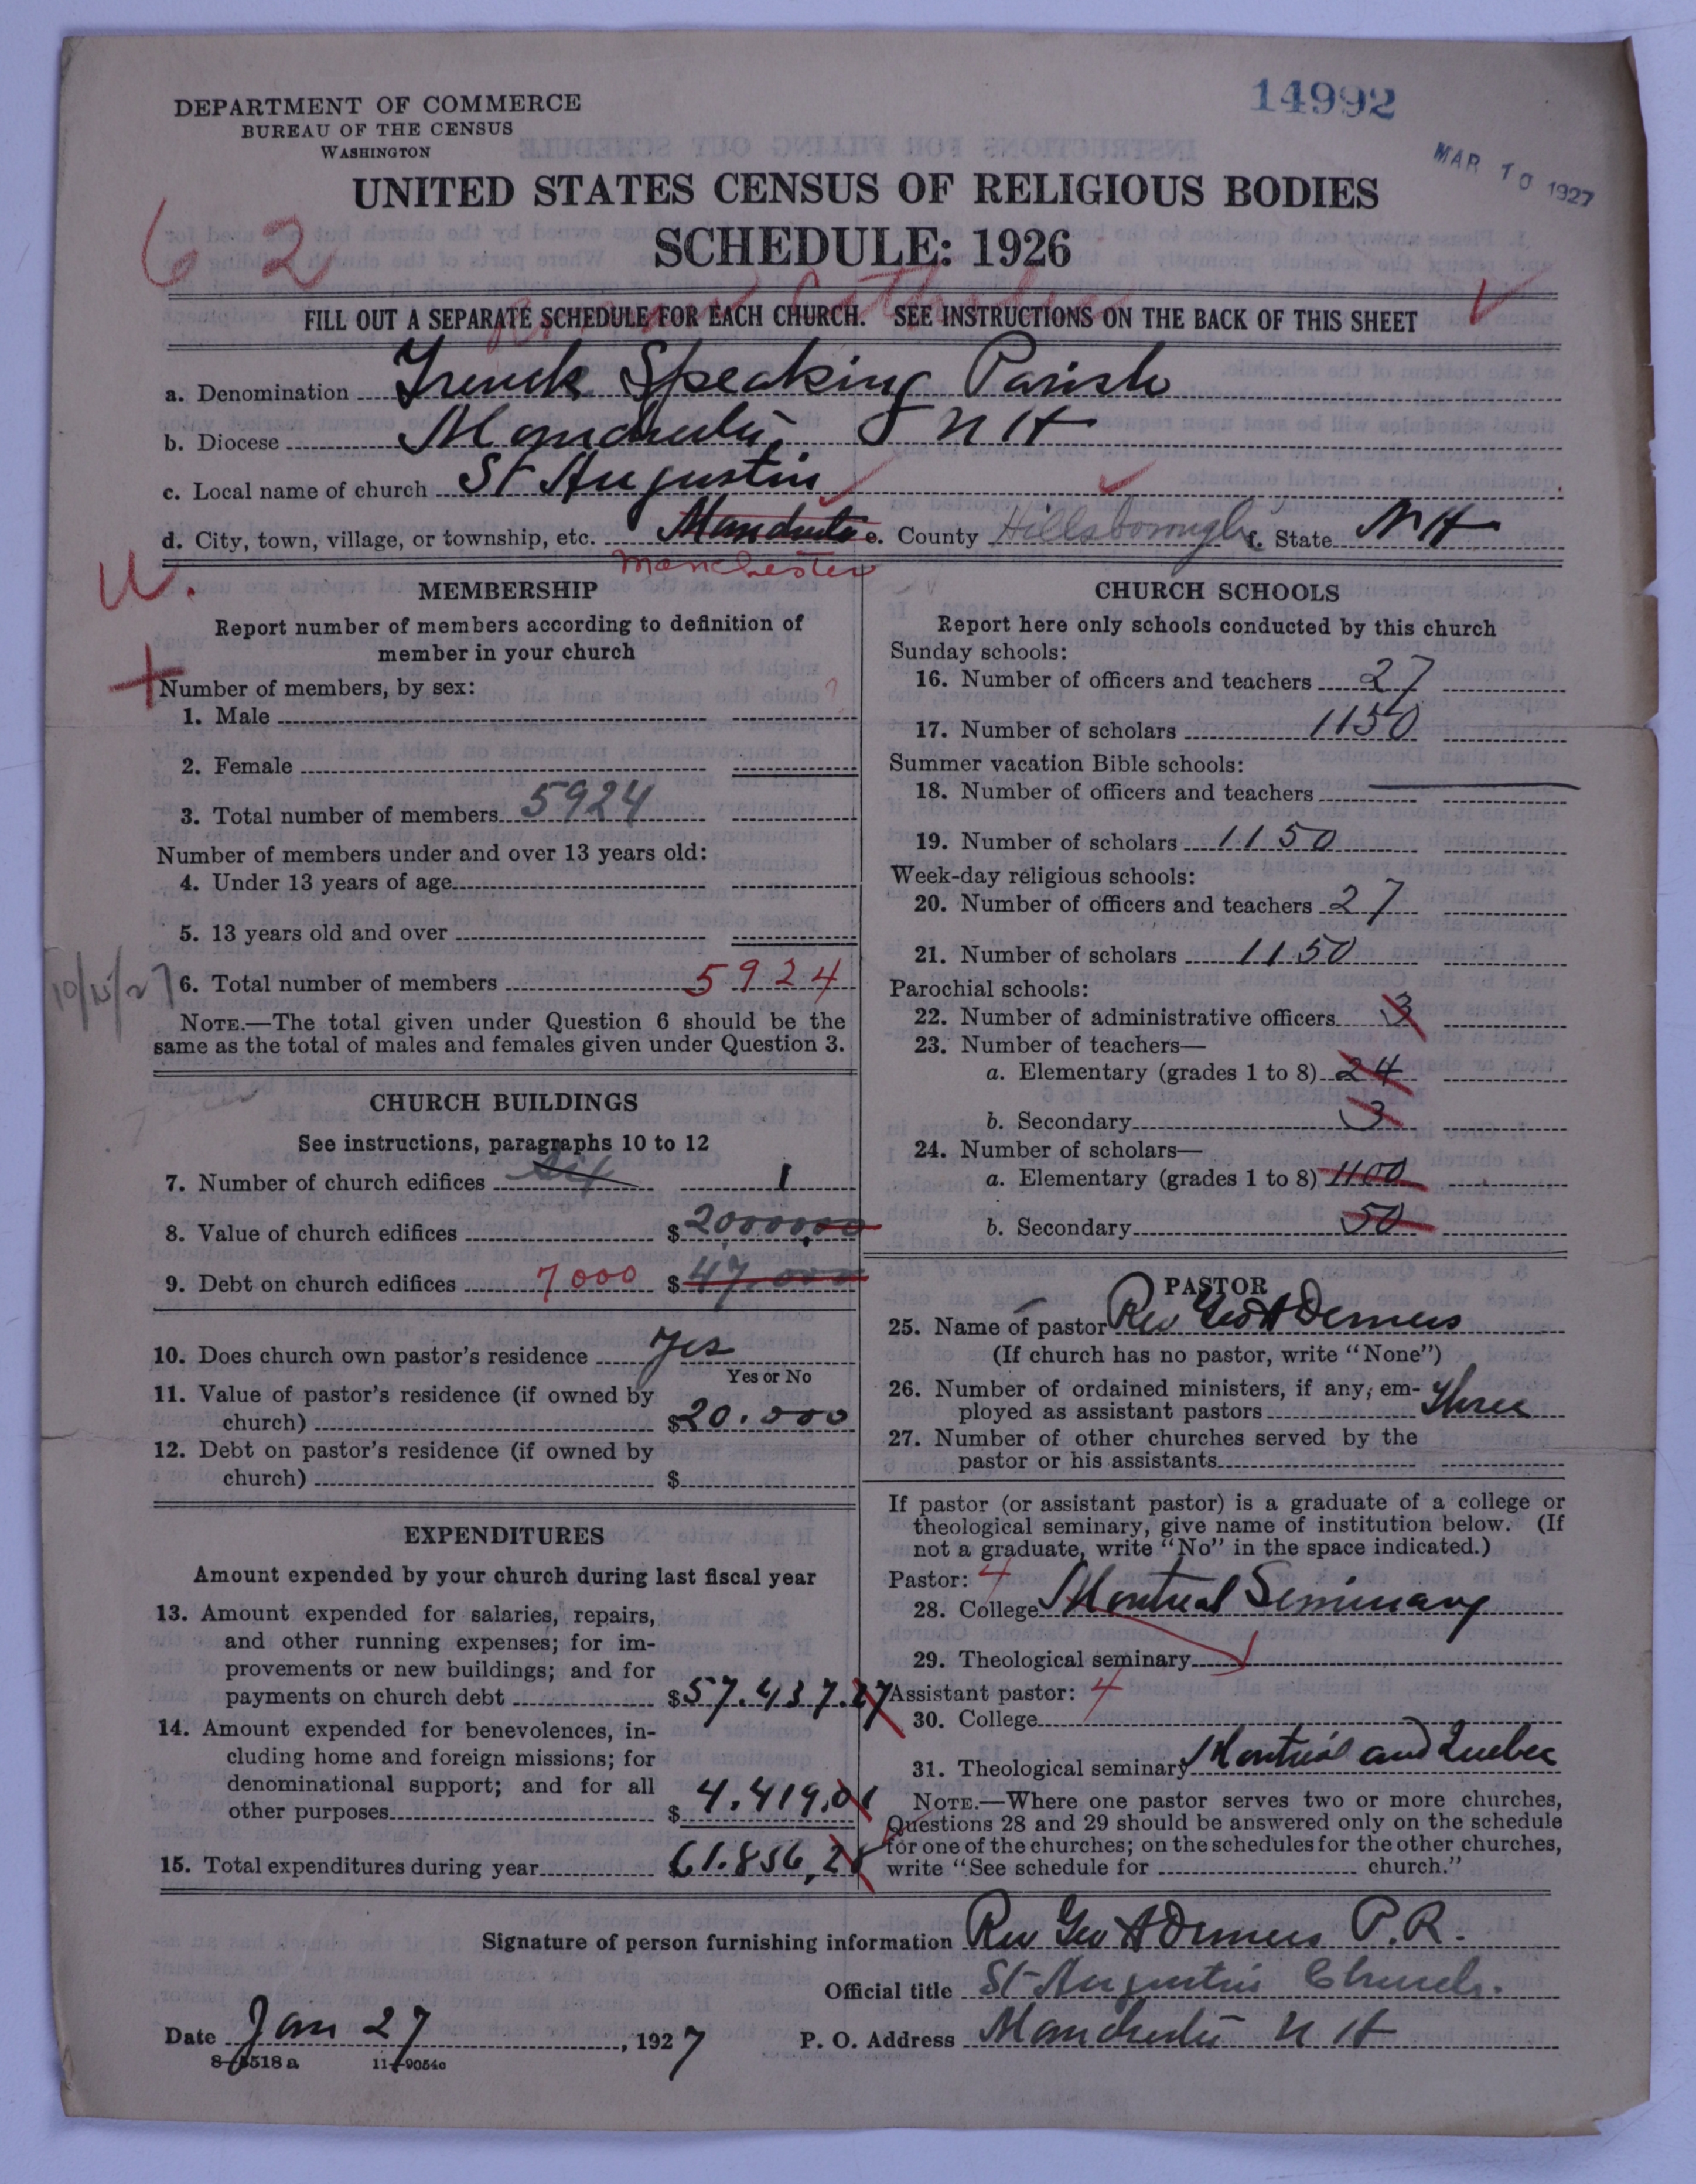 14992
DEPARTMENT OF COMMERCE
BUREAU OF THE CENSUS
WASHINGTON
MAR 10 1927
UNITED STATES CENSUS OF RELIGIOUS BODIES
SCHEDULE: 1926
62
Roman Catholic
FILL OUT A SEPARATE SCHEDULE FOR EACH CHURCH. SEE INSTRUCTIONS ON THE BACK OF THIS SHEET
a. Denomination French Speaking Parish
b. Diocese Manchester, N H
c. Local name of church St Augustin
d. City, town, village, or township, etc. Manchester e. County Hillsborough f. State N H
Manchester
U.
MEMBERSHIP
Report number of members according to definition of
member in your church
+
Number of members, by sex:
1. Male
2. Female
3. Total number of members 5924
Number of members under and over 13 years old:
4. Under 13 years of age
5. 13 years old and over
10/15/27
6. Total number of members 5924
NOTE.—The total given under Question 6 should be the
same as the total of males and females given under Question 3.
CHURCH BUILDINGS
See instructions, paragraphs 10 to 12
7. Number of church edifices 1
8. Value of church edifices $200000,00
9. Debt on church edifices 7000 $47.000
10. Does church own pastor's residence Yes
Yes or No
11. Value of pastor's residence (if owned by
church) $20.000
12. Debt on pastor's residence (if owned by
church) $
EXPENDITURES
Amount expended by your church during last fiscal year
13. Amount expended for salaries, repairs,
and other running expenses; for im-
provements or new buildings; and for
payments on church debt $57.437.27
14. Amount expended for benevolences, in-
cluding home and foreign missions; for
denominational support; and for all
other purposes $4.419.01
15. Total expenditures during year 61.856,28
CHURCH SCHOOLS
Report here only schools conducted by this church
Sunday schools:
16. Number of officers and teachers 27
17. Number of scholars 1150
Summer vacation Bible schools:
18. Number of officers and teachers
19. Number of scholars 1150
Week-day religious schools:
20. Number of officers and teachers 27
21. Number of scholars 1150
Parochial schools:
22. Number of administrative officers 3
23. Number of teachers—
a. Elementary (grades 1 to 8) 24
b. Secondary 3
24. Number of scholars—
a. Elementary (grades 1 to 8) 1100
b. Secondary 50
PASTOR
25. Name of pastor Rev Geo A Demers
(If church has no pastor, write "None")
26. Number of ordained ministers, if any, em-
ployed as assistant pastors Three
27. Number of other churches served by the
pastor or his assistants
If pastor (or assistant pastor) is a graduate of a college or
theological seminary, give name of institution below. (If
not a graduate, write "No" in the space indicated.)
Pastor: 4
28. College Montreal Seminary
29. Theological seminary
Assistant pastor: 4
30. College
31. Theological seminary Montreal and Quebec
NOTE.—Where one pastor serves two or more churches,
Questions 28 and 29 should be answered only on the schedule
for one of the churches; on the schedules for the other churches,
write "See schedule for church."
Signature of person furnishing information Rev Geo A Demers P.R.
Official title St Augustin Church.
Date Jan 27, 1927 P. O. Address Manchester N H
8-5518 a 11-9054c